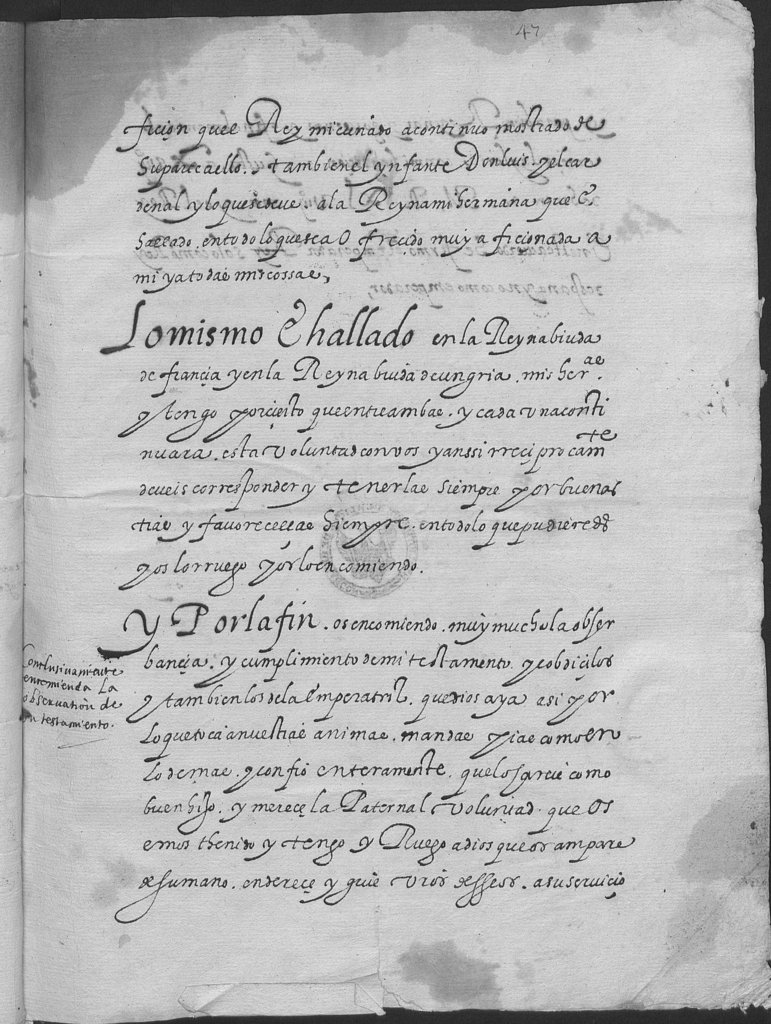 47
ficion quel Rey mi cuñado a continuo mostrado de
Su parte aello. y tambien el ynfante Don luis. y el car
denal y lo que se deue. ala Reyna mi hermana que E
hallado, en todo lo que se a O frecido muy a ficionada a
mi y a todas mis cossas,
Lo mismo E hallado en la Reyna biuda
de françia y en la Reyna biuda de ungria. mis heras.
y tengo por çierto que entreambas. y cada una conti
nuara. esta voluntad con vos y anssi rreçiprocamte
deueis corresponder y tenerlas siempre por buenas
tias y favorecellas Siempre. en todo lo que pudieredes
y os lo rruego y os lo encomiendo.
Y Por la fin. os encomiendo. muy mucho la obser
bançia. y cumplimiento de mi testamento. y cobdiçilos
y tambien los dela Emperatriz. que dios aya asi por
lo que toca a nuestras animas. mandas pias como en
lo demas. y confio enteramente. que lo hareis como
buen hijo. y mereçe la Paternal voluntad. que Os
emos thenido y tengo y Ruego a dios que os ampare
de su mano. endereçe y guie vros desseos. a su serviçio
Conclusivamente
encomienda la
observation de
su testamento.